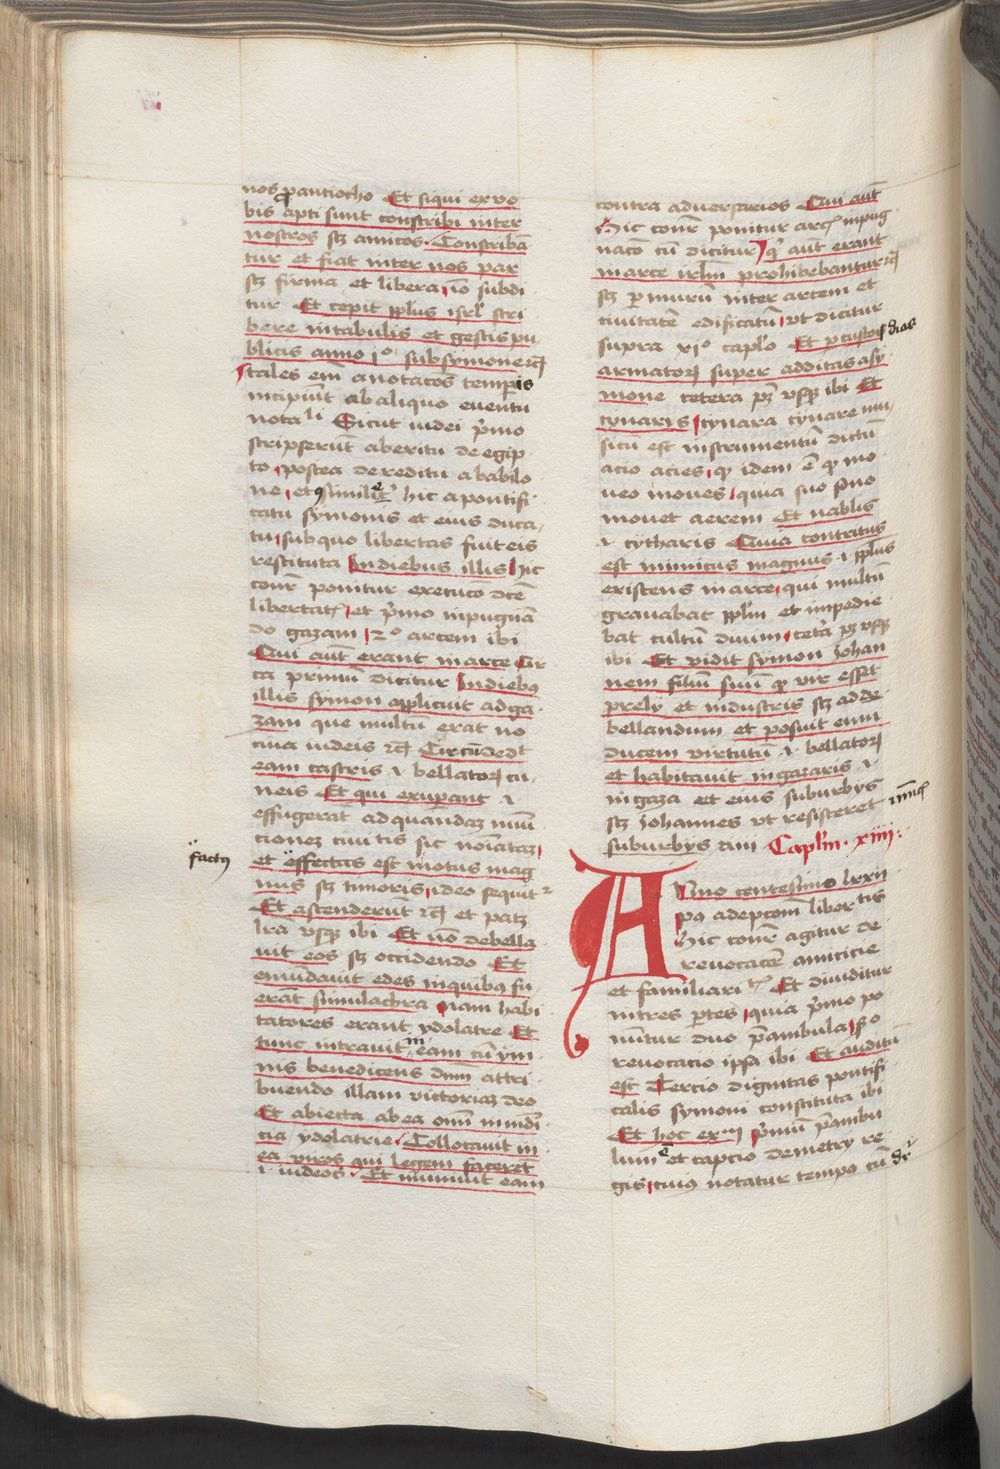 nos pro antiocho Et siqui ex vo
bis apti sunt constribi inter
nostros sz amicos. Constriba
tur et fiat inter nos pax
sz firma et libera io subdi
tur Et cepit pplus isrl stri
bere in tabulis et gestis pu
blicis anno i° sub symone
tales em anotacoes temporis
incipiut ab aliquo euentu
notali Sicut iudei primo
stripserut ab exitu de egip
to postea de reditu a babilo
ne et similit hic a pontifi
catu symonis et eius duca
tu sub quo libertas fuit eis
restituta In diebus illis hic
conr ponitur execuco dce
libertat et primo inpugna
do gazam 2° artem ibi
Qui aut erant in arce Cir
ca primum dicitur In diebus
illis symon applicuit ad ga
zam que multu erat no
ciua iudeis Circudedt
eam castris et bellator cu
neis Et qui exierant
effugerat ad quandaz mui
cionez ciuitis sic noiataz
factus
et effectus est motus mag
nus sz timoris ideo sequit
Et ascenderut et patz
lra vsqz ibi Et no debella
uit eos sz occidendo Et
emudauit edes in quibus fu
erat simulachra nam habi
tatores erant ydolatre Et
tunc intrauit in eam cu ym
nis benedicens dum attri
buendo illam victoriaz deo
Et abiecta ab ea omi inmudi
cia ydolatrie Collocauit in
ea viros qui legem faceret
i iudeos. Et muniuit eam
contra aduersarios Qui aut
Hic conr ponitur arc inpug
naco cu dicitur q aut erant
in arce irlm prohibebantur
sz per muru inter artem et
ciuitate edificatu vt dicitur
supra xi° caplo Et custodias
armator super additas a sy
mone cetera pz vsqz ibi Et
cynaris cynara cynare mu
sicu est instrumentu dictu
a cio cies q idem e q mo
ueo moues quia suo sono
mouet aerem Et nablis
et cytharis Quia contritus
est inimicus magnus i pplus
existens in arce qui multu
grauabat pplm et impedie
bat cultu diuinu cetera pz vsqz
ibi Et vidit symon Johan
nem filiu suu q vir esset
prely et industris sz ad de
bellandum et posuit eum
ducem virtutu et bellator
et habitauit in gazaris i
in gaza et eius suburbys
sz Johannes vt resisteret
suburbys Caplm xiiii
Anno centesimo lxxii
pos adepcom libertis
hic conr agitur de
reuocacoe amicicie
et familiarit Et diuiditur
in tres partes quia primo po
nuntur duo preambula 2°
reuocacio ipsa ibi Et auditu
est Tercio dignitas pontifi
calis symoni constituta ibi
Et hoc ex primu preambu
lum est capcio demetry re
gis cuius notatur tempus cu dr